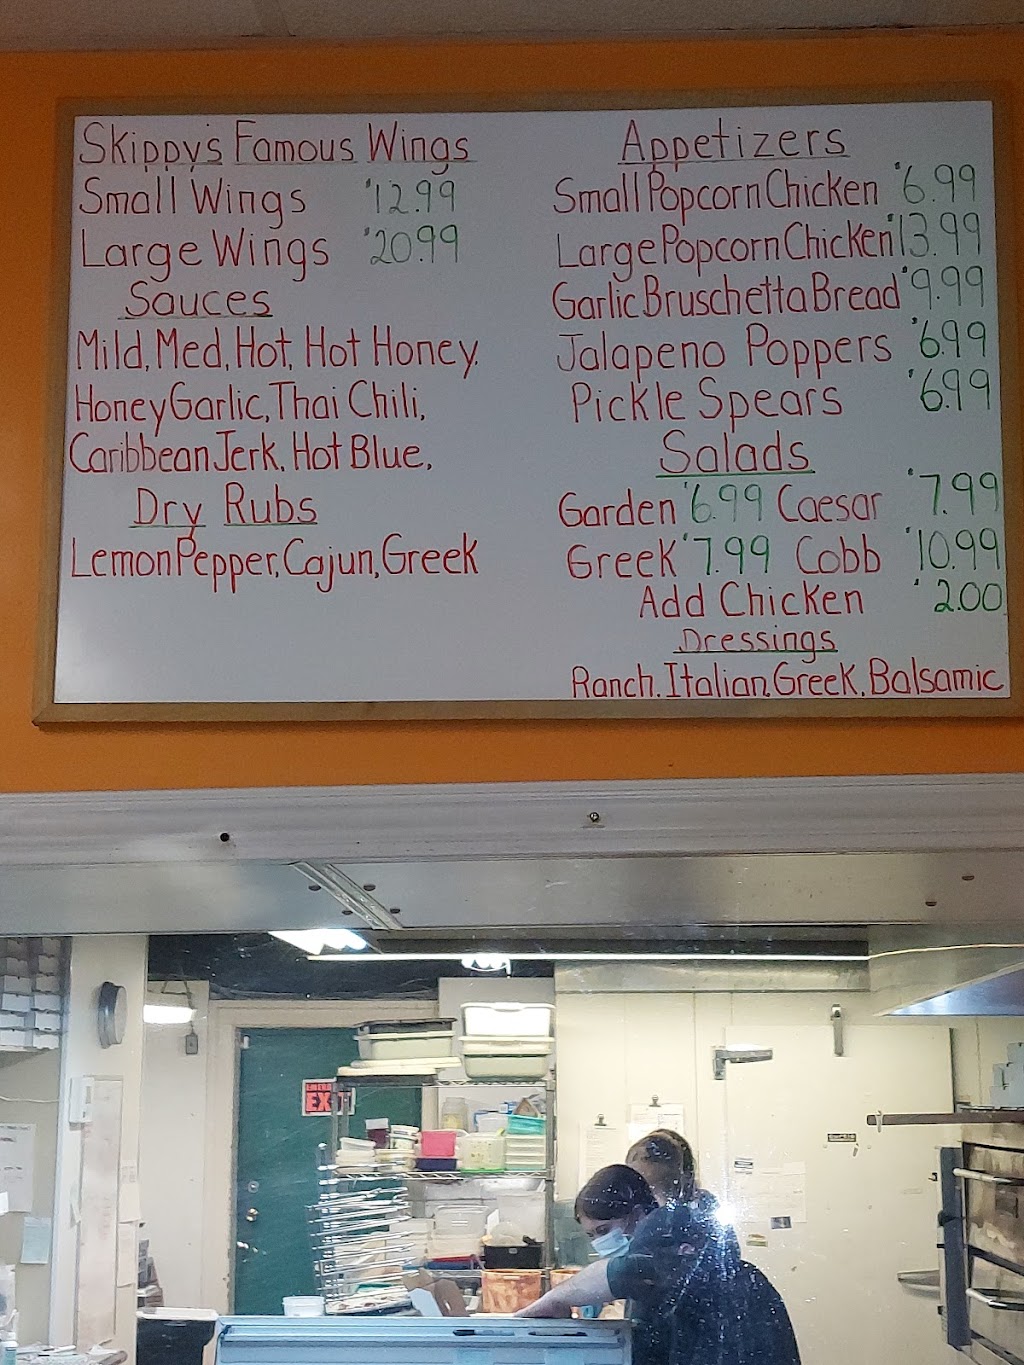 Skippy's Famous Wings
Small Wings $12.99
Large Wings $20.99
Sauces
Mild, Med, Hot, Hot Honey,
Honey Garlic, Thai Chili,
Caribbean Jerk, Hot Blue,
Dry Rubs
Lemon Pepper, Cajun, Greek
Appetizers
Small Popcorn Chicken $6.99
Large Popcorn Chicken $13.99
Garlic Bruschetta Bread $9.99
Jalapeno Poppers $6.99
Pickle Spears $6.99
Salads
Garden $6.99 Caesar $7.99
Greek $7.99 Cobb $10.99
Add Chicken $2.00
Dressings
Ranch, Italian, Greek, Balsamic
EXIT